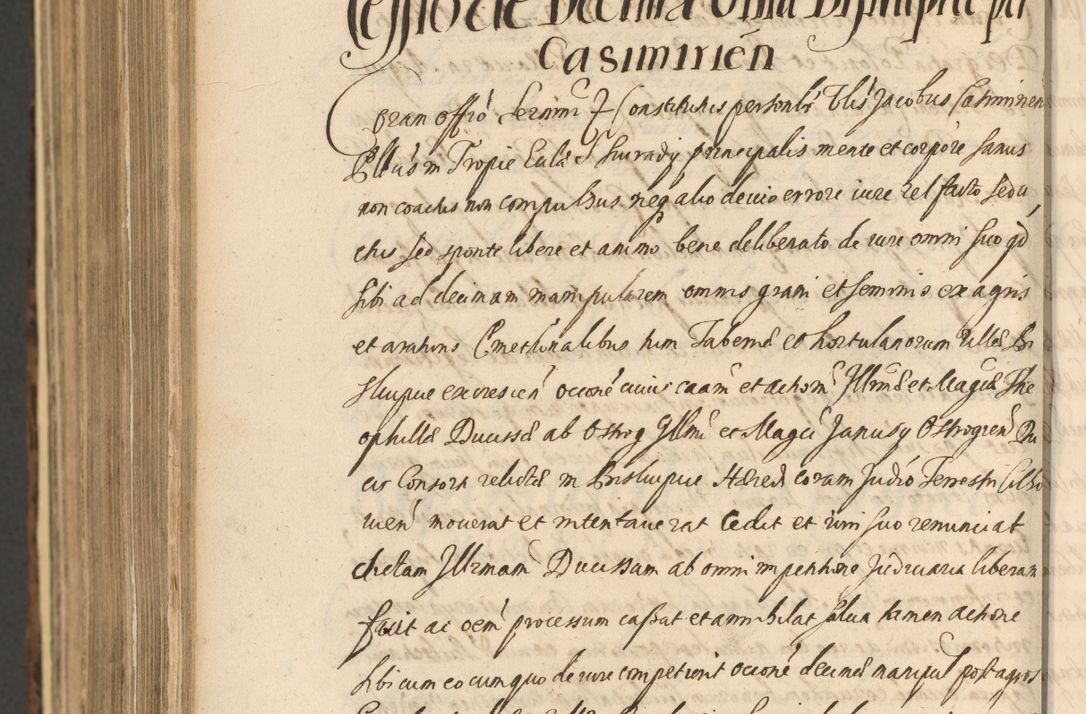 Casimirien
Coram offio Serenmi Constitutus personlr Vblis Jacobus Casimirien
Pltus in Tropie Ecclae Szczurady principalis mente et corpore sanus
non coactus non compulsus neq alio devio errore iure vel facto sedu
ctus sed sponte libere et animo bene deliberato de iure omni suo qd
sibi ad decimam manipularem omnis grani et seminis ex agris
et arationis Cmethonalibus tum Taberne et hortulanorum Villae Bi
skupice excrescen occone cuius caam et actiom Illrmae et Magcae The
ophillae Ducissae ab Ostrog Illmi et Magci Janusy Ostrogien Du
cis Consors relictae in Biskupice Haered coram Judio Terrestri
moverat et intentaverat Cedit et iuri suo renunciat
dictam Illrmam Ducissam ab omni impetitione Judiciaria liberam
facit ac oem processum cassat et annihilat salva tamen actione
sibi cum eo cum quo de iure competerit occone decimae manipul post agros